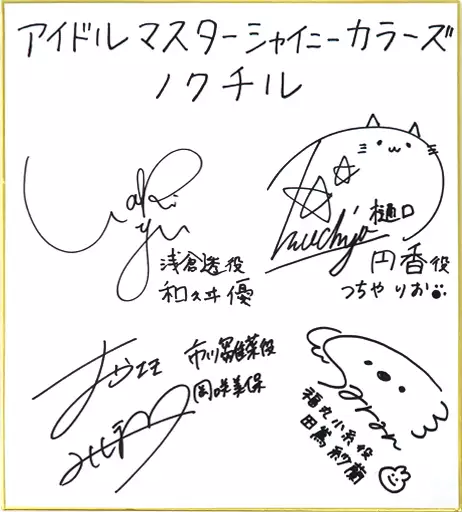 アイドルマスターシャイニーカラーズ
ノクチル
浅倉透役
和久井優
樋口
円香役
つちやりお
市川雛菜役
岡咲美保
福丸小糸役
田嶌紗蘭